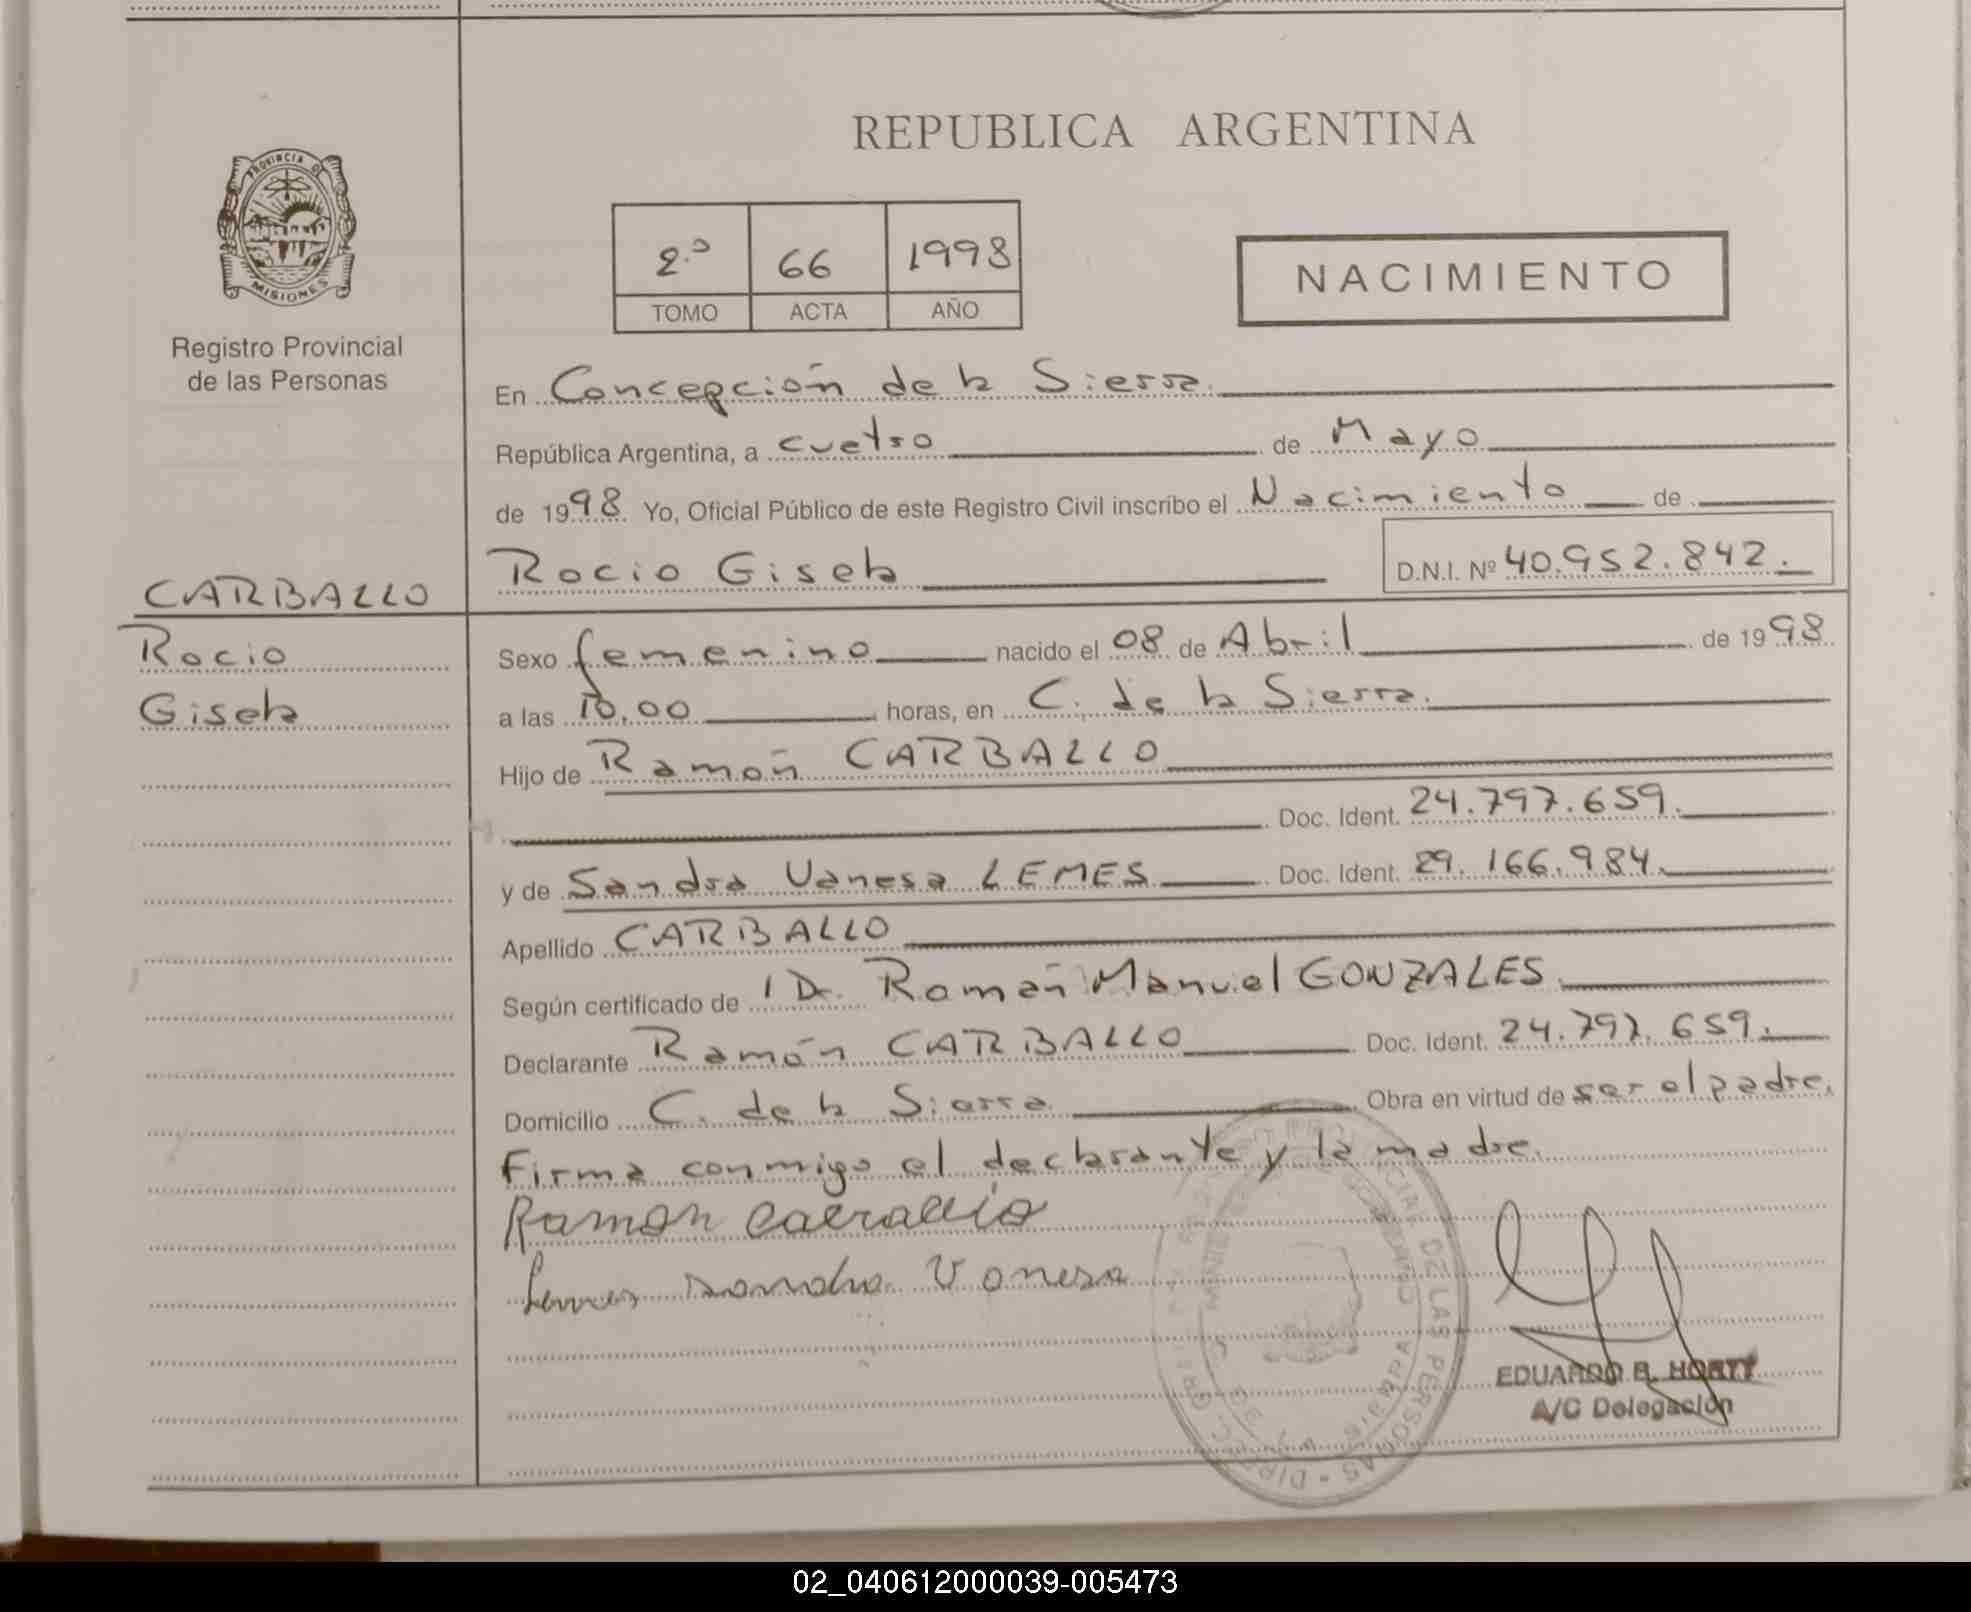 REPUBLICA ARGENTINA
PROVINCIA DE
MISIONES
Registro Provincial
de las Personas
2.º 66 1998
TOMO ACTA AÑO
NACIMIENTO
En Concepción de la Sierra.
República Argentina, a cuatro de Mayo
de 1998 Yo, Oficial Público de este Registro Civil inscribo el Nacimiento de
Rocio Gisela D.N.I. Nº 40.952.842.
CARBALLO
Rocio
Gisela
Sexo femenino nacido el 08 de Abril de 1998
a las 10,00 horas, en C. de la Sierra.
Hijo de Ramón CARBALLO
Doc. Ident. 24.797.659.
y de Sandra Vanesa LEMES Doc. Ident. 29.166.984.
Apellido CARBALLO
Según certificado de 1 Dr. Ramón Manuel GONZALES
Declarante Ramón CARBALLO Doc. Ident. 24.797.659.
Domicilio C. de la Sierra Obra en virtud de ser el padre.
Firma conmigo el declarante y la madre.
Ramon Carballo
Lemes Sandra Vanesa
EDUARDO R. HORTT
A/C Delegación
02_040612000039-005473